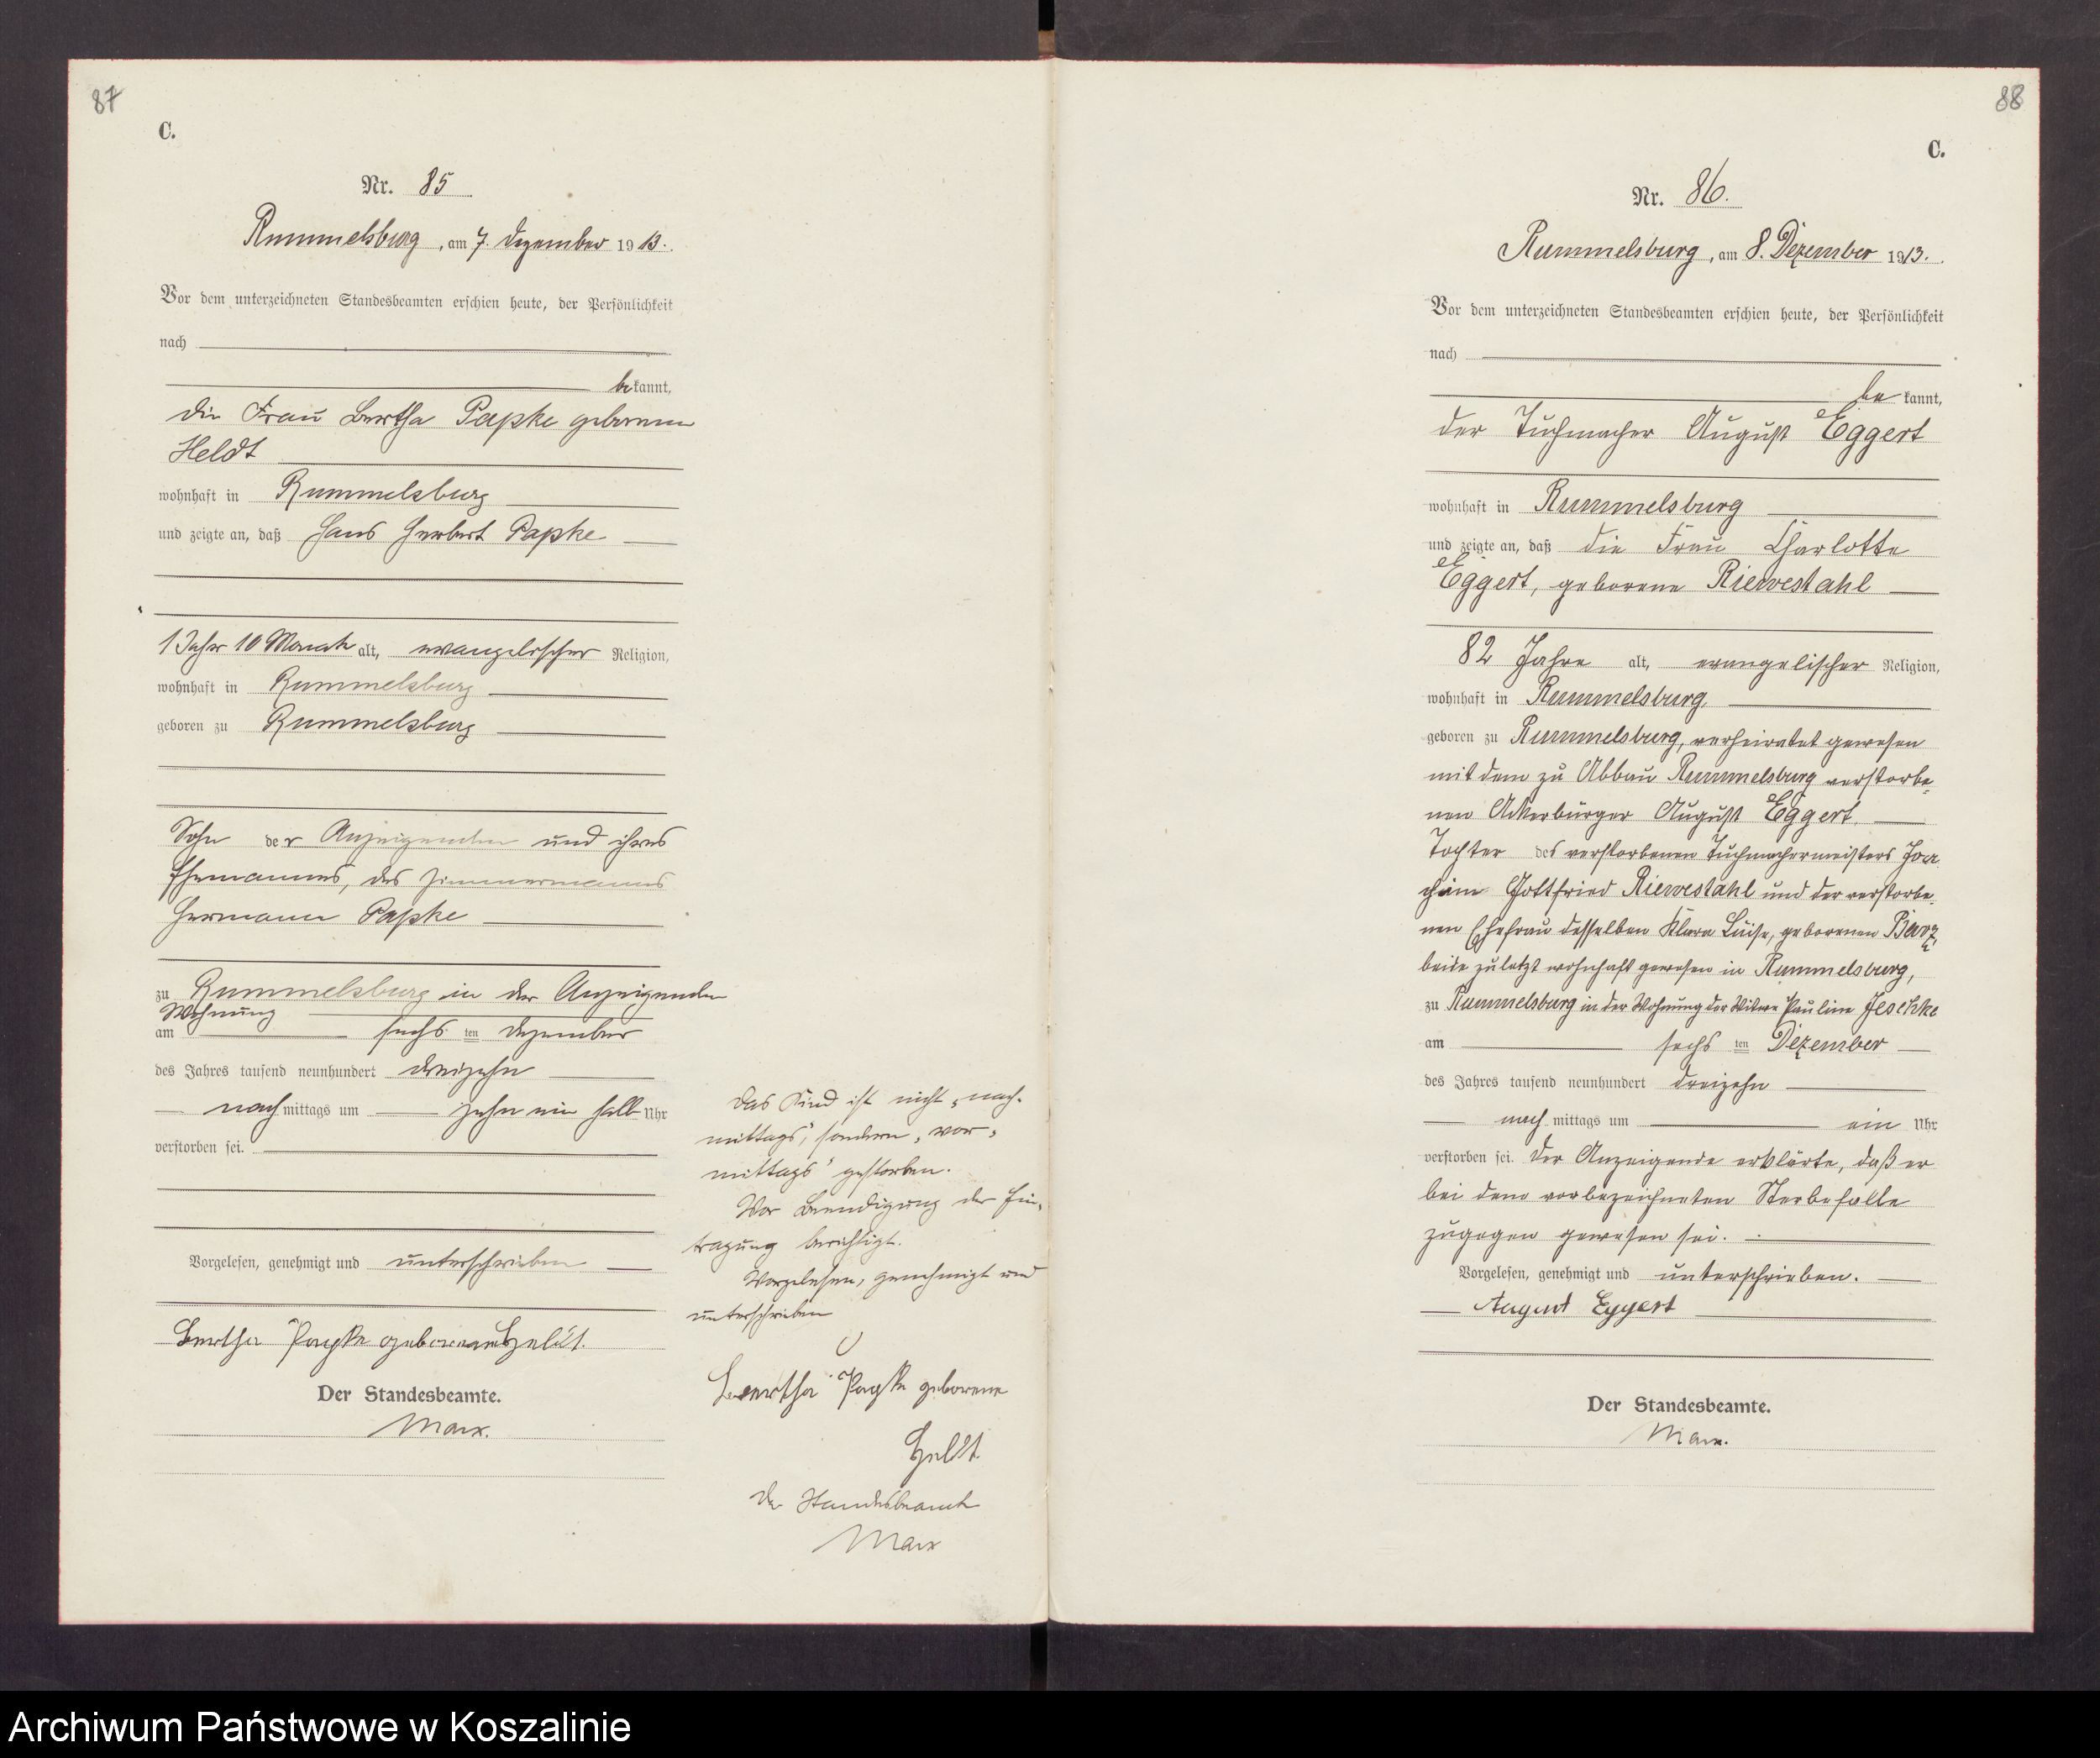 87
C.
Nr. 85
Rummelsburg, am 7. Dezember 1913.
Vor dem unterzeichneten Standesbeamten erschien heute, der Persönlichkeit
nach
bekannt,
die Frau Bertha Papke geborene
Heldt
wohnhaft in Rummelsburg
und zeigte an, daß Hans Herbert Papke
1 Jahr 10 Monate alt, evangelischer Religion,
wohnhaft in Rummelsburg
geboren zu Rummelsburg
Sohn der Anzeigenden und ihres
Ehemannes, des Zimmermanns
Hermann Papke
zu Rummelsburg in der Anzeigenden
Wohnung
am sechsten Dezember
des Jahres tausend neunhundert dreizehn
nachmittags um zehn ein halb Uhr
verstorben sei.
Vorgelesen, genehmigt und unterschrieben
Bertha Papke geborene Heldt.
Der Standesbeamte.
Marx.
Das Kind ist nicht „nach-
mittags", sondern „vor-
mittags" gestorben.
Vor Beendigung der Ein-
tragung berichtigt.
Vorgelesen, genehmigt und
unterschrieben
Bertha Papke geborene
Heldt.
Der Standesbeamte
Marx
88
C.
Nr. 86.
Rummelsburg, am 8. Dezember 1913.
Vor dem unterzeichneten Standesbeamten erschien heute, der Persönlichkeit
nach
bekannt,
der Tuchmacher August Eggert
wohnhaft in Rummelsburg
und zeigte an, daß die Frau Charlotte
Eggert, geborene Riewestahl
82 Jahre alt, evangelischer Religion,
wohnhaft in Rummelsburg
geboren zu Rummelsburg, verheiratet gewesen
mit dem zu Abbau Rummelsburg verstorbe-
nen Ackerbürger August Eggert.
Tochter des verstorbenen Tuchmachermeisters Joa-
chim Gottfried Riewestahl und der verstorbe-
nen Ehefrau desselben Klara Luise, geborenen
beide zuletzt wohnhaft gewesen in Rummelsburg,
zu Rummelsburg in der Wohnung der Witwe Pauline Jeschke
am sechsten Dezember
des Jahres tausend neunhundert dreizehn
nachmittags um ein Uhr
verstorben sei. Der Anzeigende erklärte, daß er
bei dem vorbezeichneten Sterbefalle
zugegen gewesen sei.
Vorgelesen, genehmigt und unterschrieben.
August Eggert
Der Standesbeamte.
Marx.
Archiwum Państwowe w Koszalinie